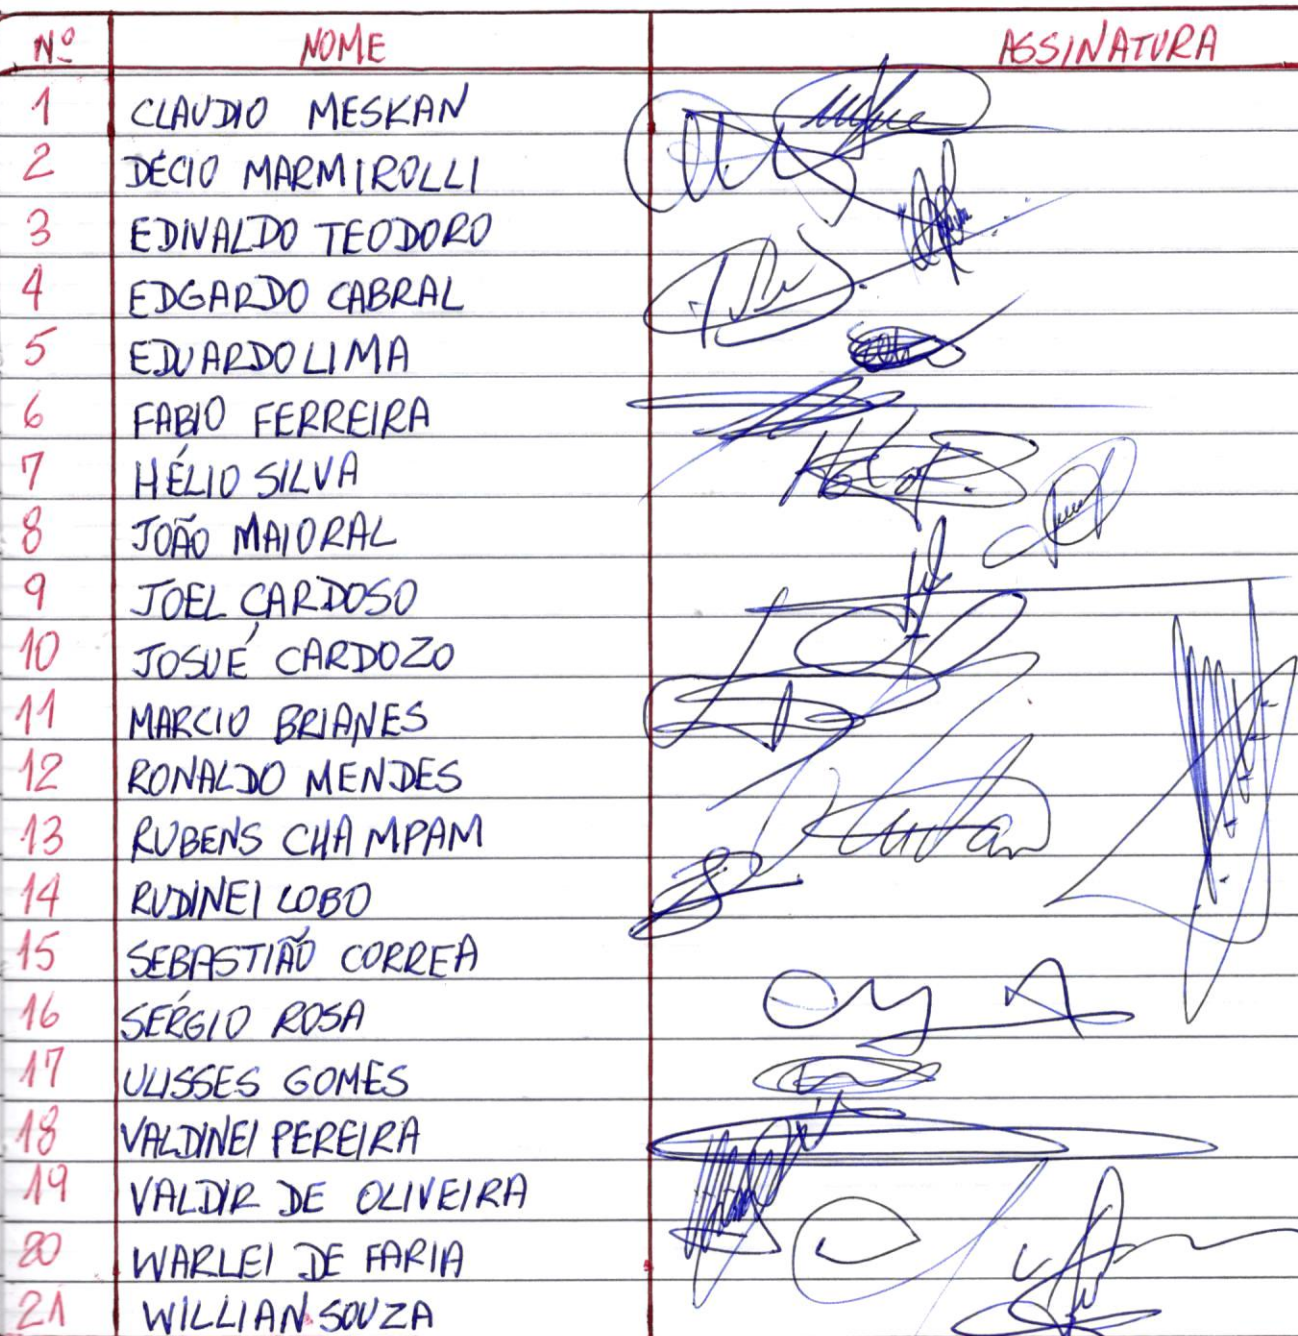 Nº NOME ASSINATURA
1 CLAUDIO MESKAN
2 DÉCIO MARMIROLLI
3 EDIVALDO TEODORO
4 EDGARDO CABRAL
5 EDUARDO LIMA
6 FABIO FERREIRA
7 HÉLIO SILVA
8 JOÃO MAIORAL
9 JOEL CARDOSO
10 JOSUÉ CARDOZO
11 MARCIO BRIANES
12 RONALDO MENDES
13 RUBENS CHAMPAM
14 RUDINEI LOBO
15 SEBASTIÃO CORREA
16 SÉRGIO ROSA
17 ULISSES GOMES
18 VALDINEI PEREIRA
19 VALDIR DE OLIVEIRA
20 WARLEI DE FARIA
21 WILLIAN SOUZA